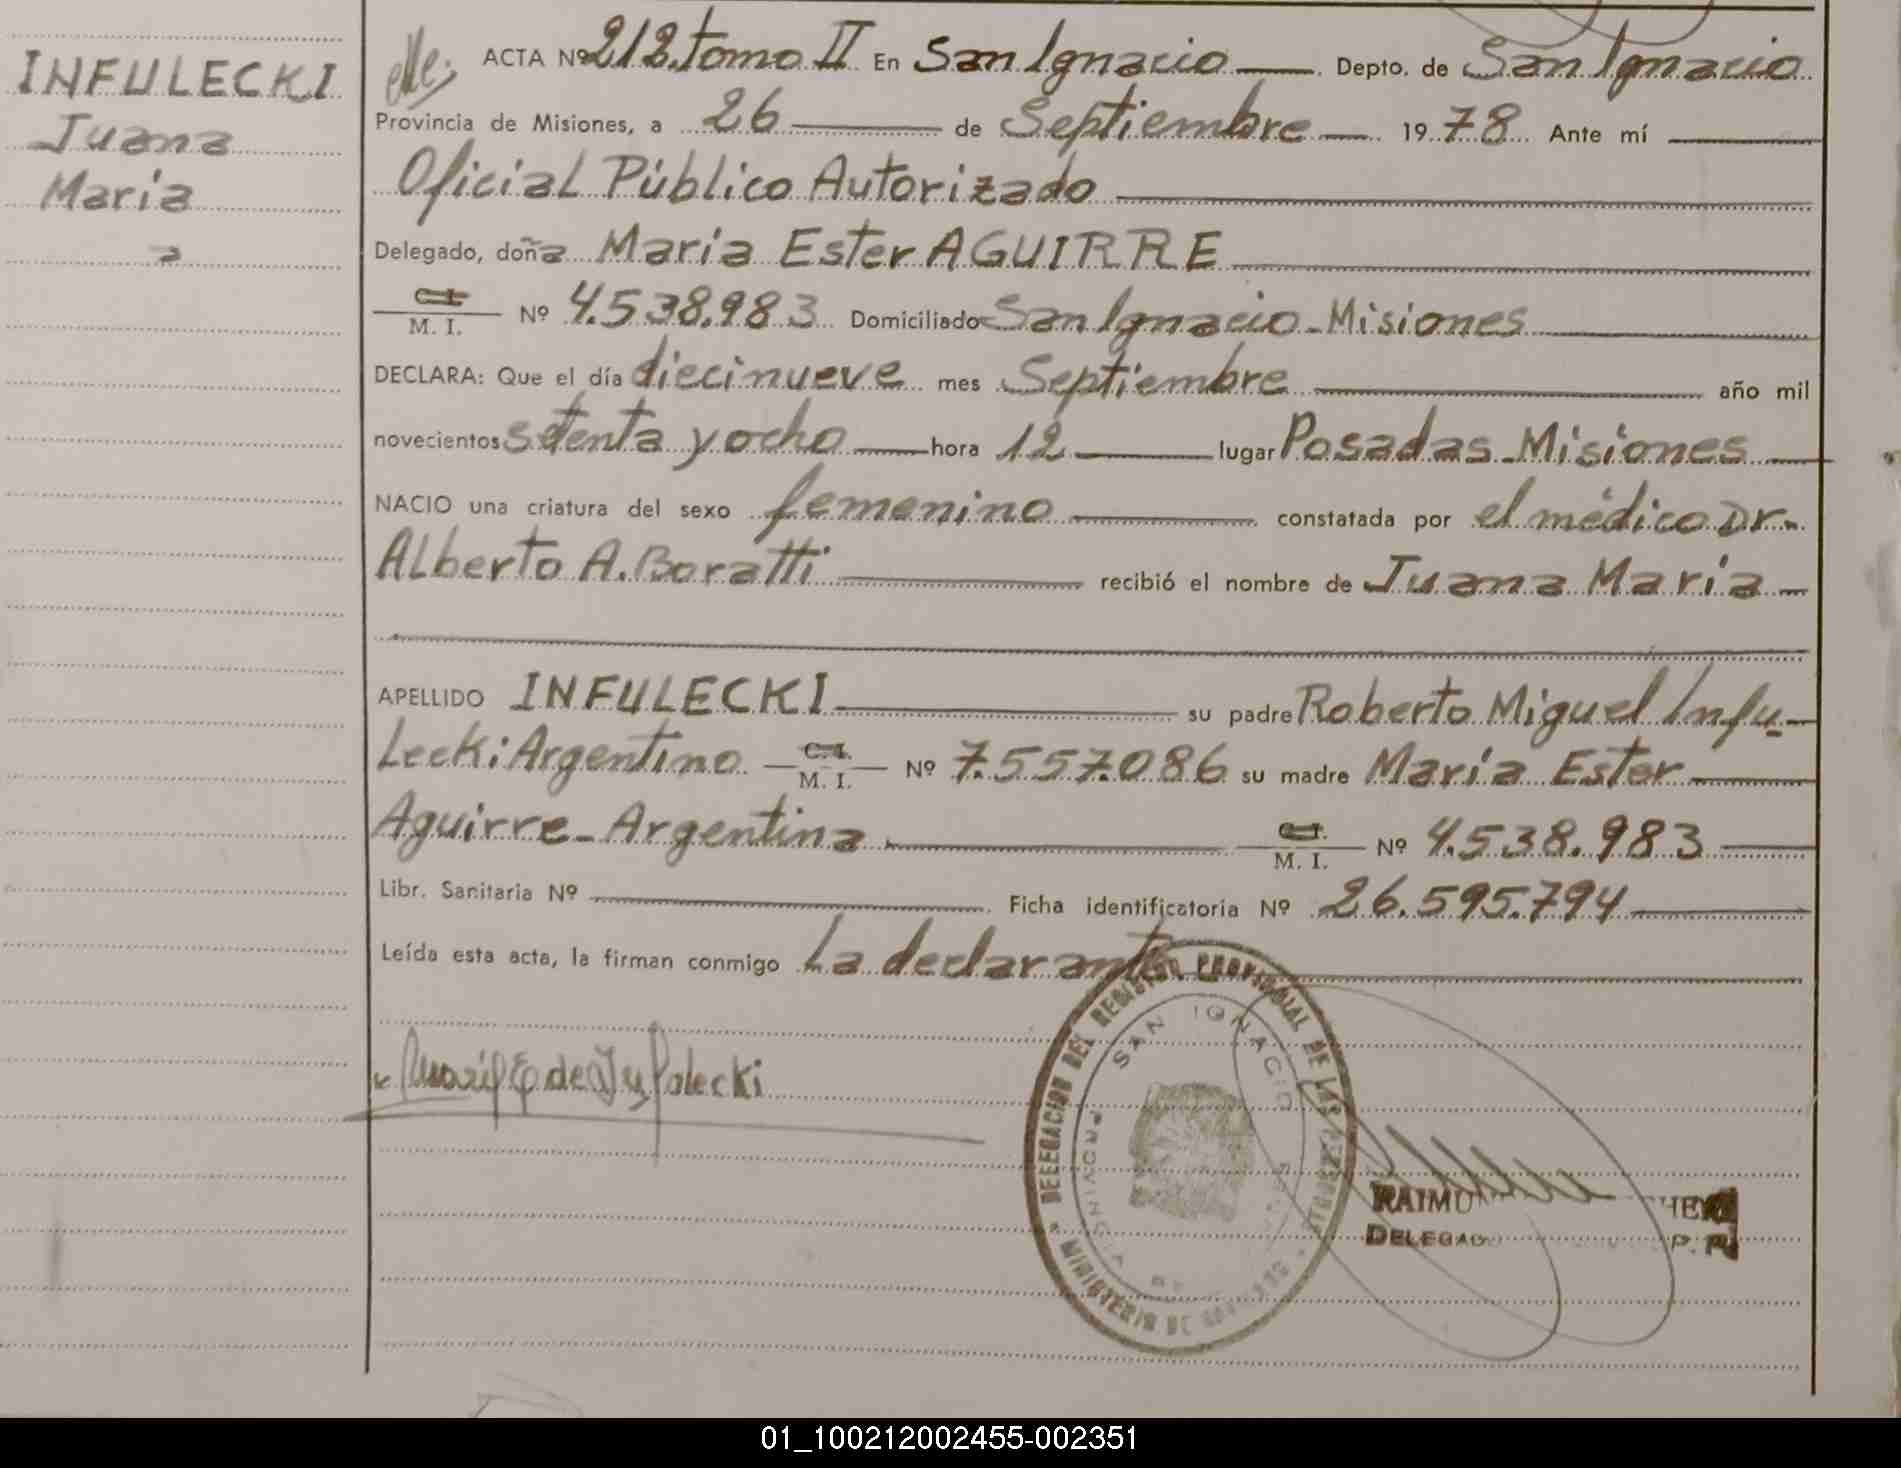 INFULECKI
Juana
Maria
ACTA Nº 212 tomo II En San Ignacio Depto. de San Ignacio
Provincia de Misiones, a 26 de Septiembre 1978 Ante mí
Oficial Público Autorizado
Delegado, doña Maria Ester AGUIRRE
C.I.
M. I. Nº 4.538.983 Domiciliado San Ignacio - Misiones
DECLARA: Que el día diecinueve mes Septiembre año mil
novecientos setenta y ocho hora 12 lugar Posadas - Misiones
NACIO una criatura del sexo femenino constatada por el médico Dr.
Alberto A. Boratti recibió el nombre de Juana Maria
APELLIDO INFULECKI su padre Roberto Miguel Infu-
lecki: Argentino C.I. M. I. Nº 7.557.086 su madre Maria Ester
Aguirre - Argentina C.I. M. I. Nº 4.538.983
Libr. Sanitaria Nº Ficha identificatoria Nº 26.595.794
Leída esta acta, la firman conmigo la declarante
DELEGACION DEL REGISTRO PROVINCIAL DE LAS PERSONAS
MINISTERIO DE GOBIERNO
SAN IGNACIO
PROVINCIA DE
DELEGADO
01_100212002455-002351